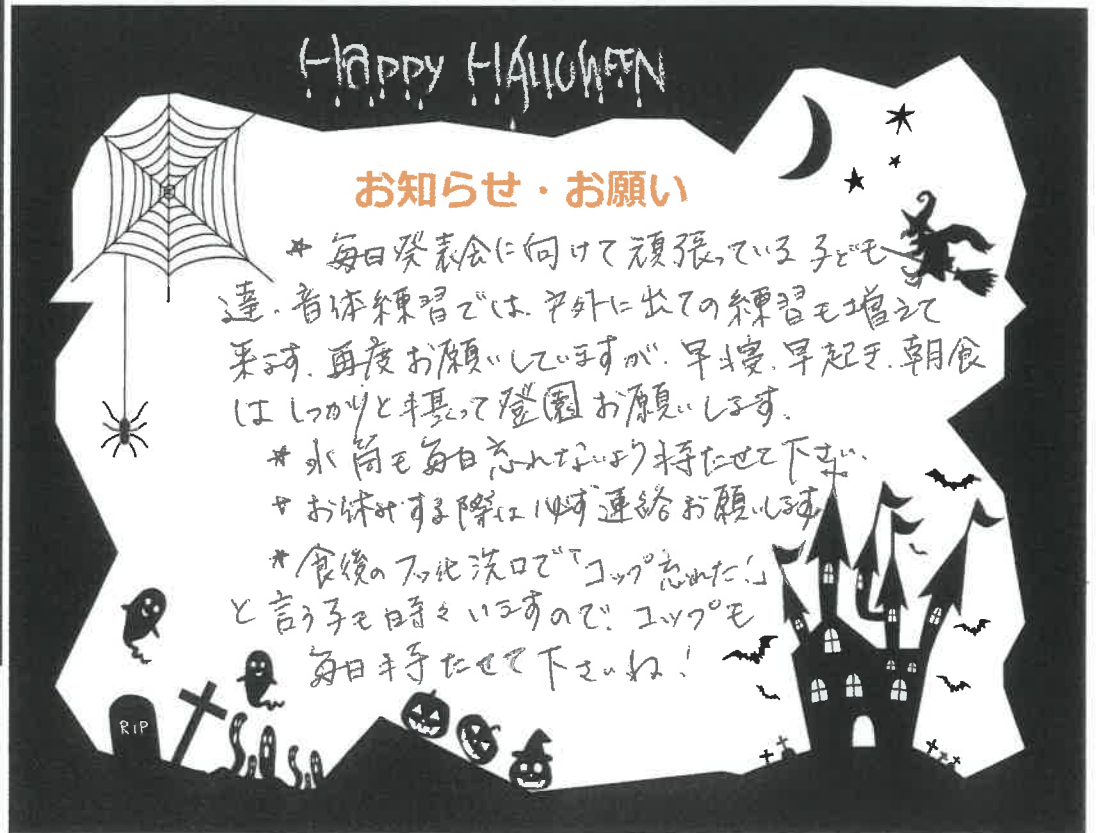 HAPPY HALLOWEEN
お知らせ・お願い
* 毎日発表会に向けて頑張っている子ども
達・音体練習では、戸外に出ての練習も増えて
来ます。再度お願いしていますが、早寝、早起き、朝食
はしっかりと摂って登園お願いします。
* 水筒も毎日忘れないよう持たせて下さい。
* お休みする際は必ず連絡お願いします
* 食後のフッ化洗口で「コップ忘れた!」
と言う子も時々いますので、コップも
毎日持たせて下さいね!
RIP